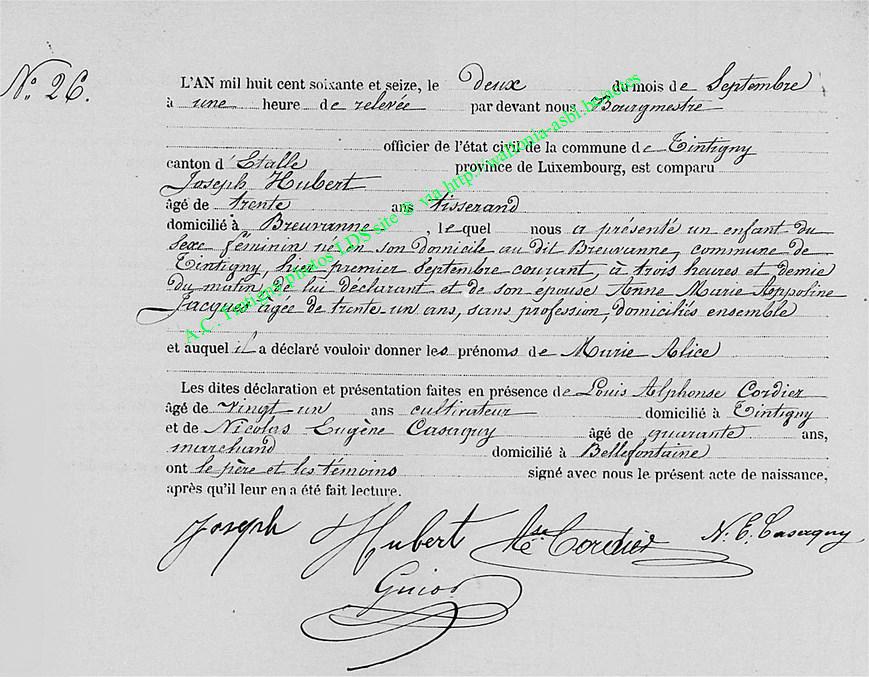 N.º 26.
L'AN mil huit cent soixante et seize, le deux du mois de Septembre
à une heure de relevée par devant nous Bourgmestre
officier de l'état civil de la commune de Tintigny
canton d'Etalle province de Luxembourg, est comparu
Joseph Hubert
âgé de trente ans tisserand
domicilié à Breuvanne, lequel nous a présenté un enfant du
sexe féminin né en son domicile au dit Breuvanne, commune de
Tintigny, hier premier Septembre courant, à trois heures et demie
du matin, de lui déclarant et de son épouse Anne Marie Appoline
Jacques âgée de trente-un ans, sans profession, domiciliés ensemble
et auquel il a déclaré vouloir donner les prénoms de Marie Alice
Les dites déclaration et présentation faites en présence de Louis Alphonse Cordier
âgé de vingt un ans cultivateur domicilié à Tintigny
et de Nicolas Eugène Casaguy âgé de quarante ans,
marchand domicilié à Bellefontaine
ont le père et les témoins signé avec nous le présent acte de naissance,
après qu'il leur en a été fait lecture.
Joseph Hubert Cordier N. E.
A.C. Tintigny photos LDS site © via http://wallonia-asbl.be/actes